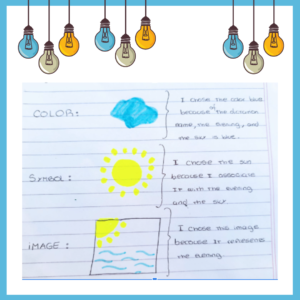 COLOR:
I chose the color blue
because of the
name, the evening, and
the sur is blue.
SYMBOL:
I chose the sun
because I associate
It with the evening
and the sur.
IMAGE:
I chose this image
because It represents
the evening.